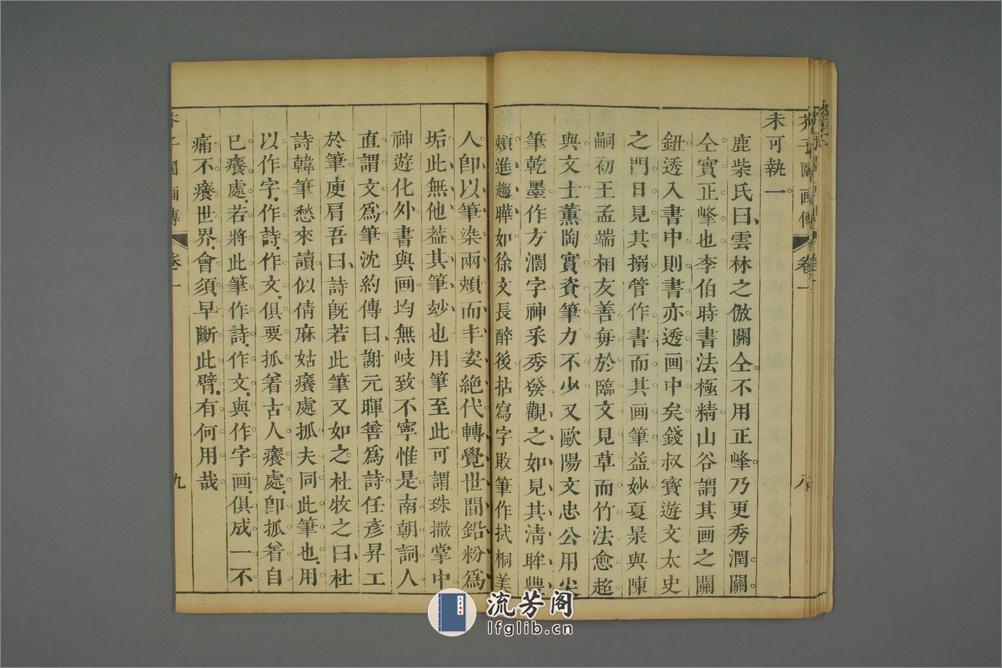 芥子園画傳 卷一 八
未可執一
鹿柴氏曰雲林之倣關仝不用正峰乃更秀潤關
仝實正峰也李伯時書法極精山谷謂其画之關
鈕透入書中則書亦透画中矣錢叔寶遊文太史
之門日見其搦管作書而其画筆益妙夏㫤與陳
嗣初王孟端相友善每於臨文見草而竹法愈超
與文士薰陶實資筆力不少又歐陽文忠公用尖
筆乾墨作方濶字神采秀發觀之如見其清眸豐
頰進趨曄如徐文長醉後拈寫字敗筆作拭桐美
人卽以筆染兩頰而丰姿絶代轉覺世間鉛粉爲
垢此無他葢其筆妙也用筆至此可謂珠撒掌中
神遊化外書與画均無岐致不寧惟是南朝詞人
直謂文爲筆沈約傳曰謝元暉善爲詩任彥昇工
於筆庾肩吾曰詩旣若此筆又如之杜牧之曰杜
詩韓筆愁來讀似倩麻姑癢處抓夫同此筆也用
以作字作詩作文俱要抓着古人癢處卽抓着自
已癢處若將此筆作詩作文與作字画俱成一不
痛不癢世界會須早斷此臂有何用哉
芥子園画傳 卷一 九
流芳阁
lfglib.cn